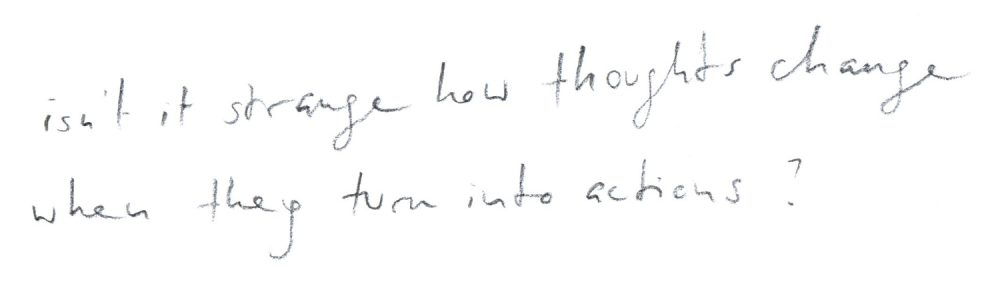 isn't it strange how thoughts change
when they turn into actions?